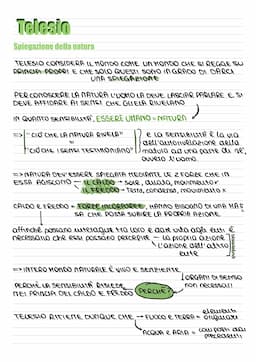 Telesio
Spiegazione della natura
TELESIO CONSIDERA IL MONDO COME UN MONDO CHE SI REGGE SU
PRINCIPI PROPRI E CHE SOLO QUESTI SONO IN GRADO DI DARCI
UNA SPIEGAZIONE
PER CONOSCERE LA NATURA L'UOMO LA DEVE LASCIAR PARLARE E SI
DEVE AFFIDARE AI SENSI CHE GLIELA RIVELANO
IN QUANTO SENSIBILITÀ, ESSERE UMANO = NATURA
=> "CIÒ CHE LA NATURA RIVELA" } E LA SENSIBILITÀ È LA VIA
= DELL'AUTORIVELAZIONE DELLA
"CIÒ CHE I SENSI TESTIMONIANO" NATURA AD UNA PARTE DI SÉ,
OVVERO L'UOMO
=> NATURA DEV'ESSERE SPIEGATA MEDIANTE LE 2 FORZE CHE IN
ESSA AGISCONO IL CALDO → sole, dilata, movimento ✓
IL FREDDO → Terra, condensa, movimento x
CALDO E FREDDO = FORZE INCORPOREE, HANNO BISOGNO DI UNA MAS
SA CHE POSSA SUBIRE LA PROPRIA AZIONE.
affinché possano interagire tra loro e dare vita agli enti è
necessario che essi possano percepire la propria azione
l'azione dell'altro
ente
=> INTERO MONDO NATURALE È VIVO E SENZIENTE
ORGANI DI SENSO
NON NECESSARI!
PERCHÉ LA SENSIBILITÀ RISIEDE PERCHÉ?
NEI PRINCIPI DEL CALDO E FREDDO
TELESIO RITIENE DUNQUE CHE → FUOCO E TERRA = elementi
originari
ACQUA E ARIA =